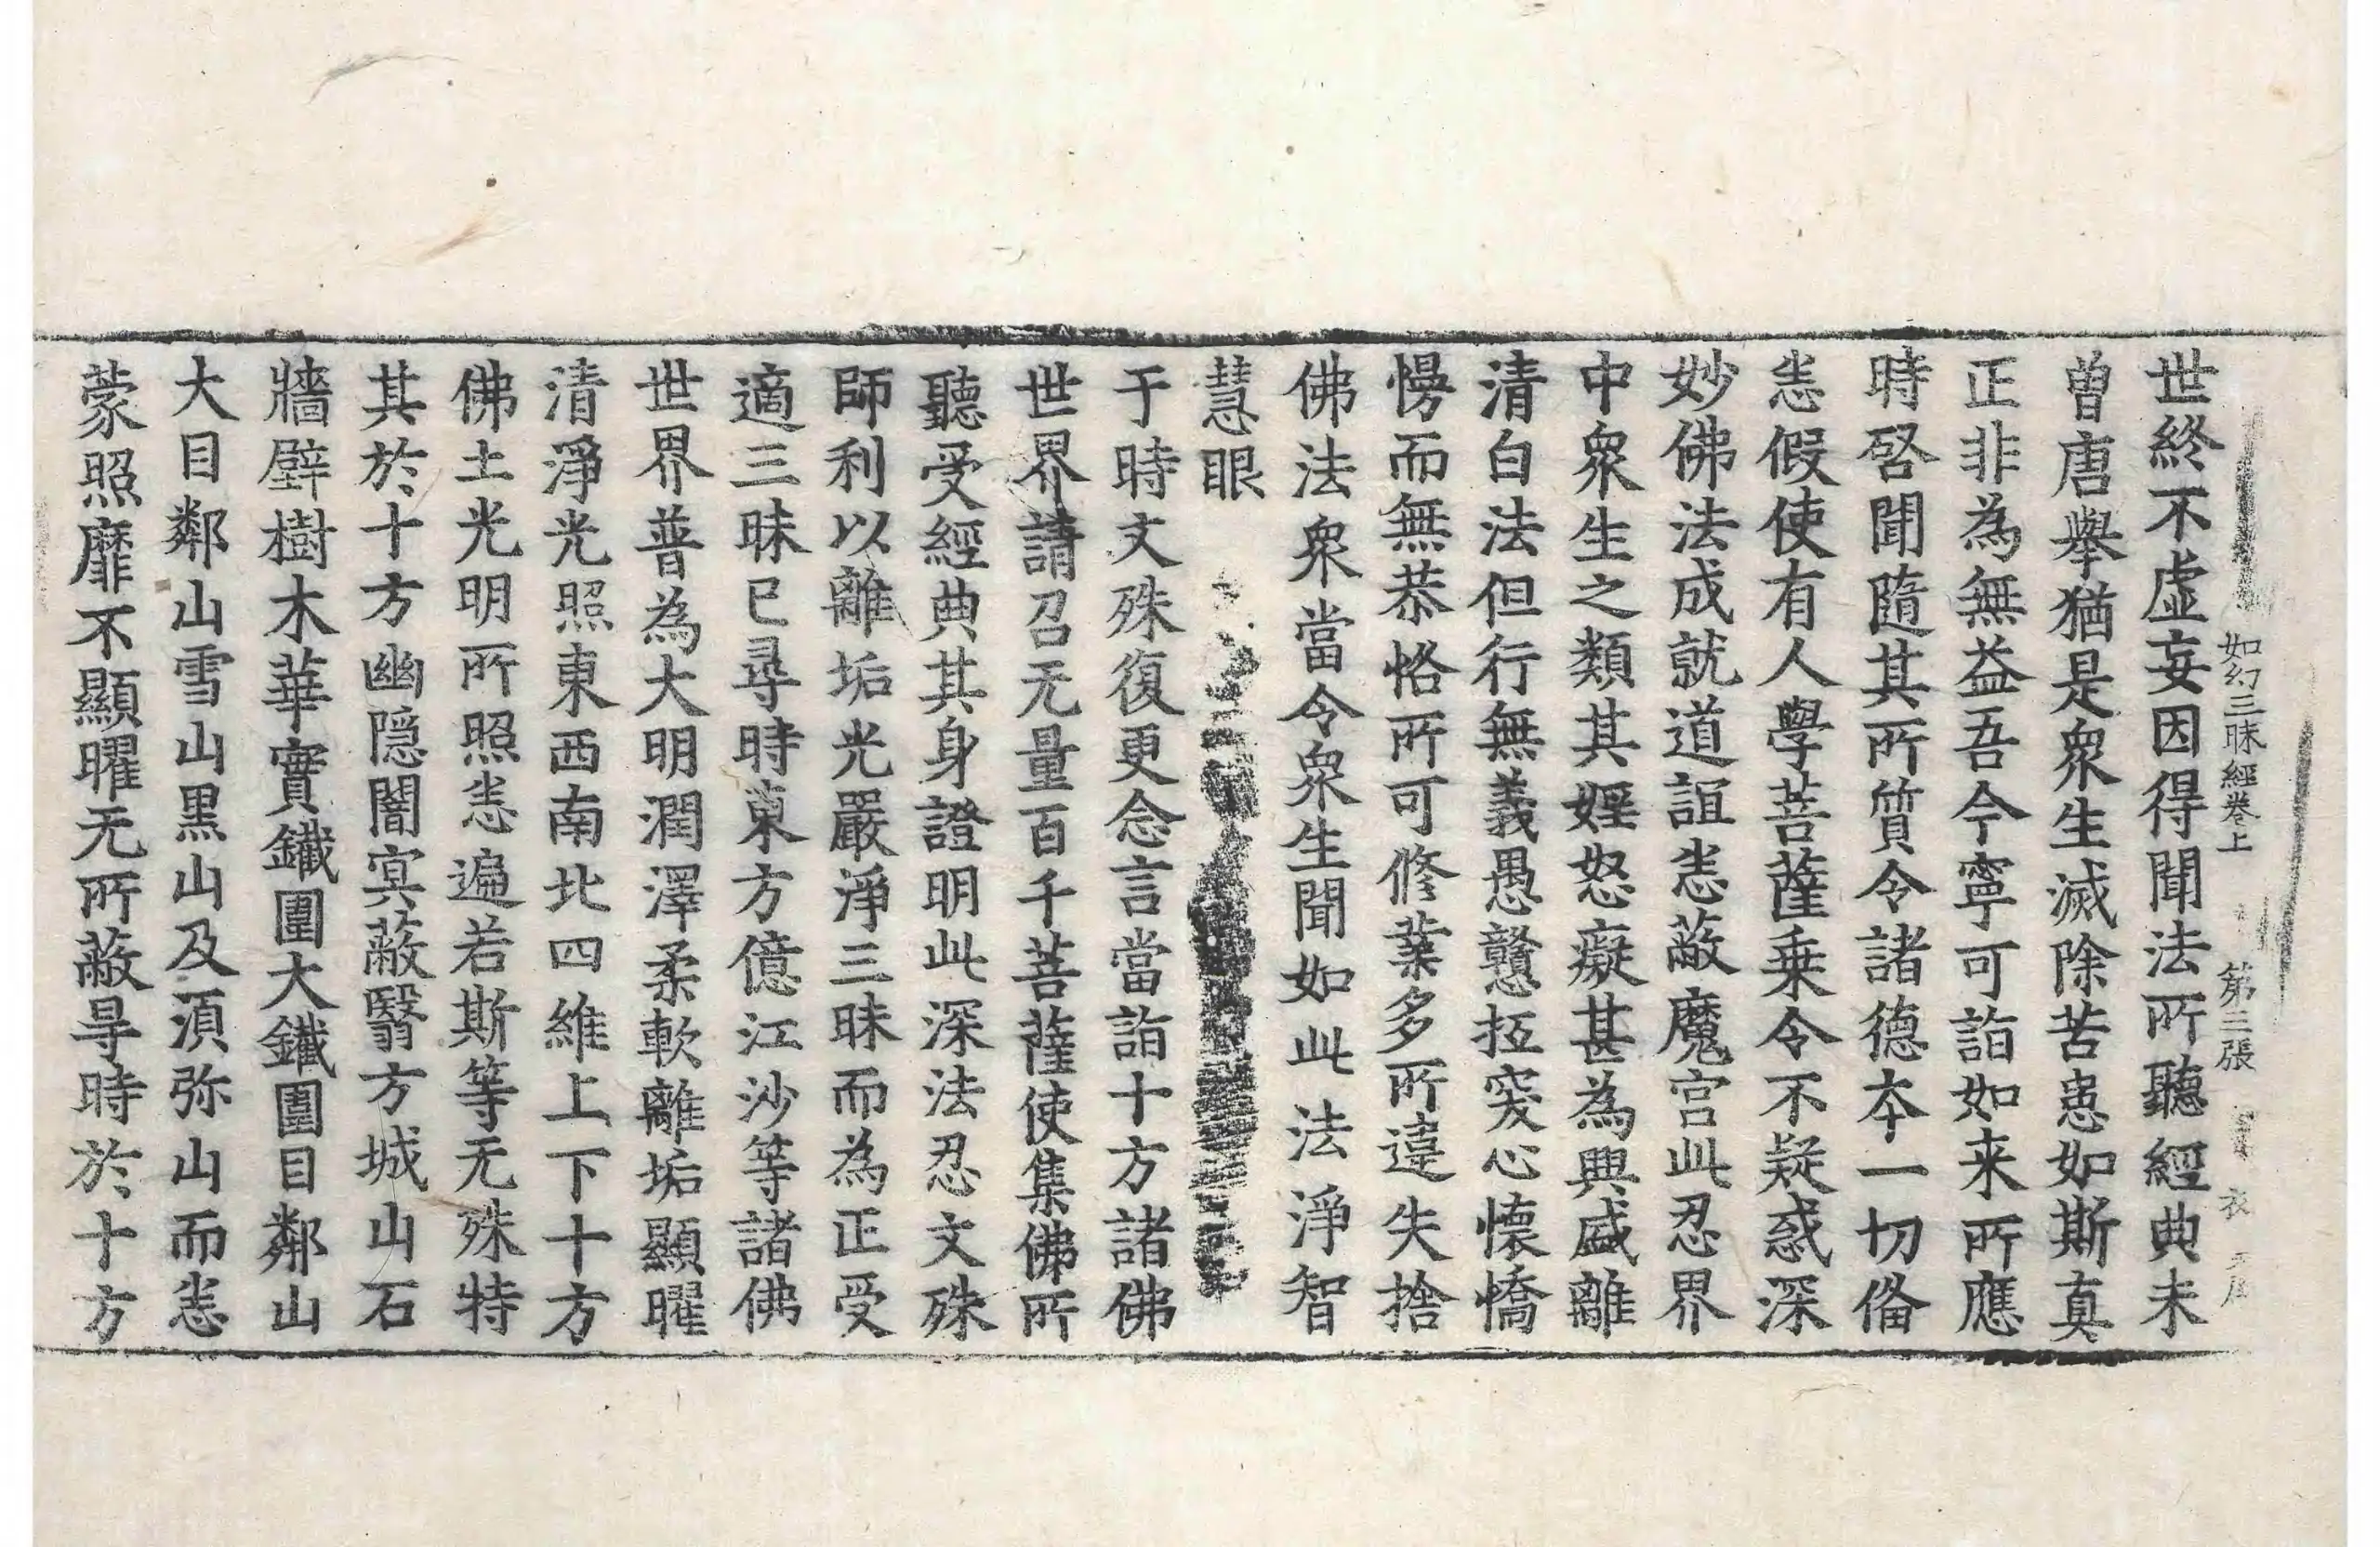 如幻三昧經卷上　第三張　衣
世終不虛妄因得聞法所聽經典未
曾唐擧猶是衆生滅除苦患如斯真
正非為無益吾今寧可詣如来所應
時啓聞隨其所質令諸德夲一切俻
恙假使有人學菩薩乗令不疑惑深
妙佛法成就道誼恙蔽魔宫此忍界
中衆生之類其婬怒癡甚為興盛離
清白法但行無義愚戅抂突心懷憍
慢而無恭恪所可修業多所違失捨
佛法衆當令衆生聞如此法淨智
慧眼
于時文殊復更念言當詣十方諸佛
世界請召无量百千菩薩使集佛所
聽受經典其身證明此深法忍文殊
師利以離垢光嚴淨三昧而為正受
適三昧已尋時東方億江沙等諸佛
世界普為大明潤澤柔軟離垢顯曜
清淨光照東西南北四維上下十方
佛土光明所照恙遍若斯等无殊特
其於十方幽隱闇冥蔽翳方城山石
牆壁樹木華實鐵圍大鐵圍目鄰山
大目鄰山雪山黒山及湏弥山而恙
蒙照靡不顯曜无所蔽㝵時於十方